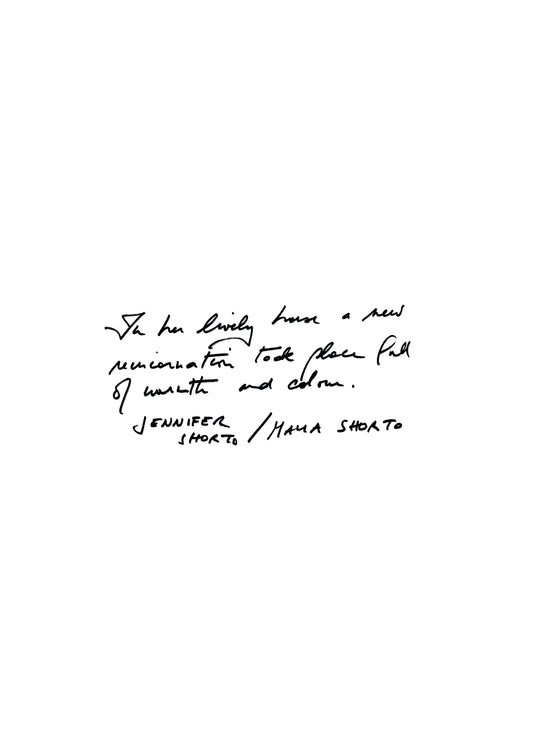 In her lively house a new
reincarnation took place full
of warmth and colour.
JENNIFER
SHORTO / MAUA SHORTO